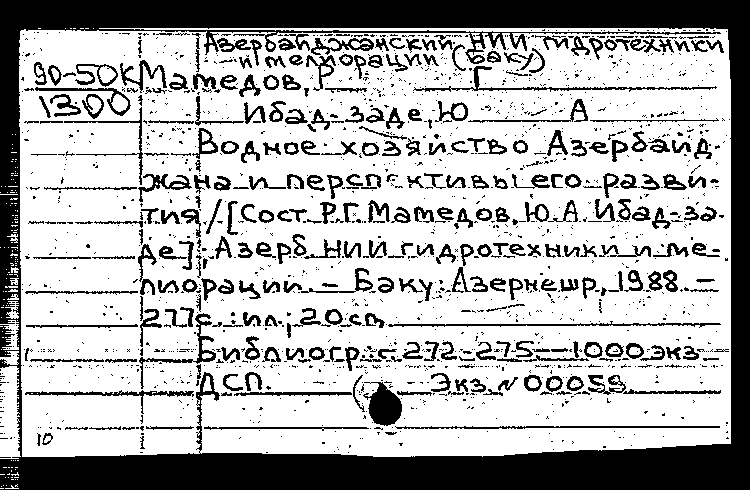 Азербайджанский НИИ гидротехники
и мелиорации (Баку)
90-50К Мамедов, Р Г
1300
Ибад-заде, Ю А
Водное хозяйство Азербайд-
жана и перспективы его разви-
тия / [Сост. Р.Г. Мамедов, Ю.А. Ибад-за-
де]; Азерб. НИИ гидротехники и ме-
лиорации. – Баку: Азернешр, 1988. –
277с.: ил.; 20см.
Библиогр.: с. 272-275 — 1000 экз
ДСП. Экз. № 00059
10